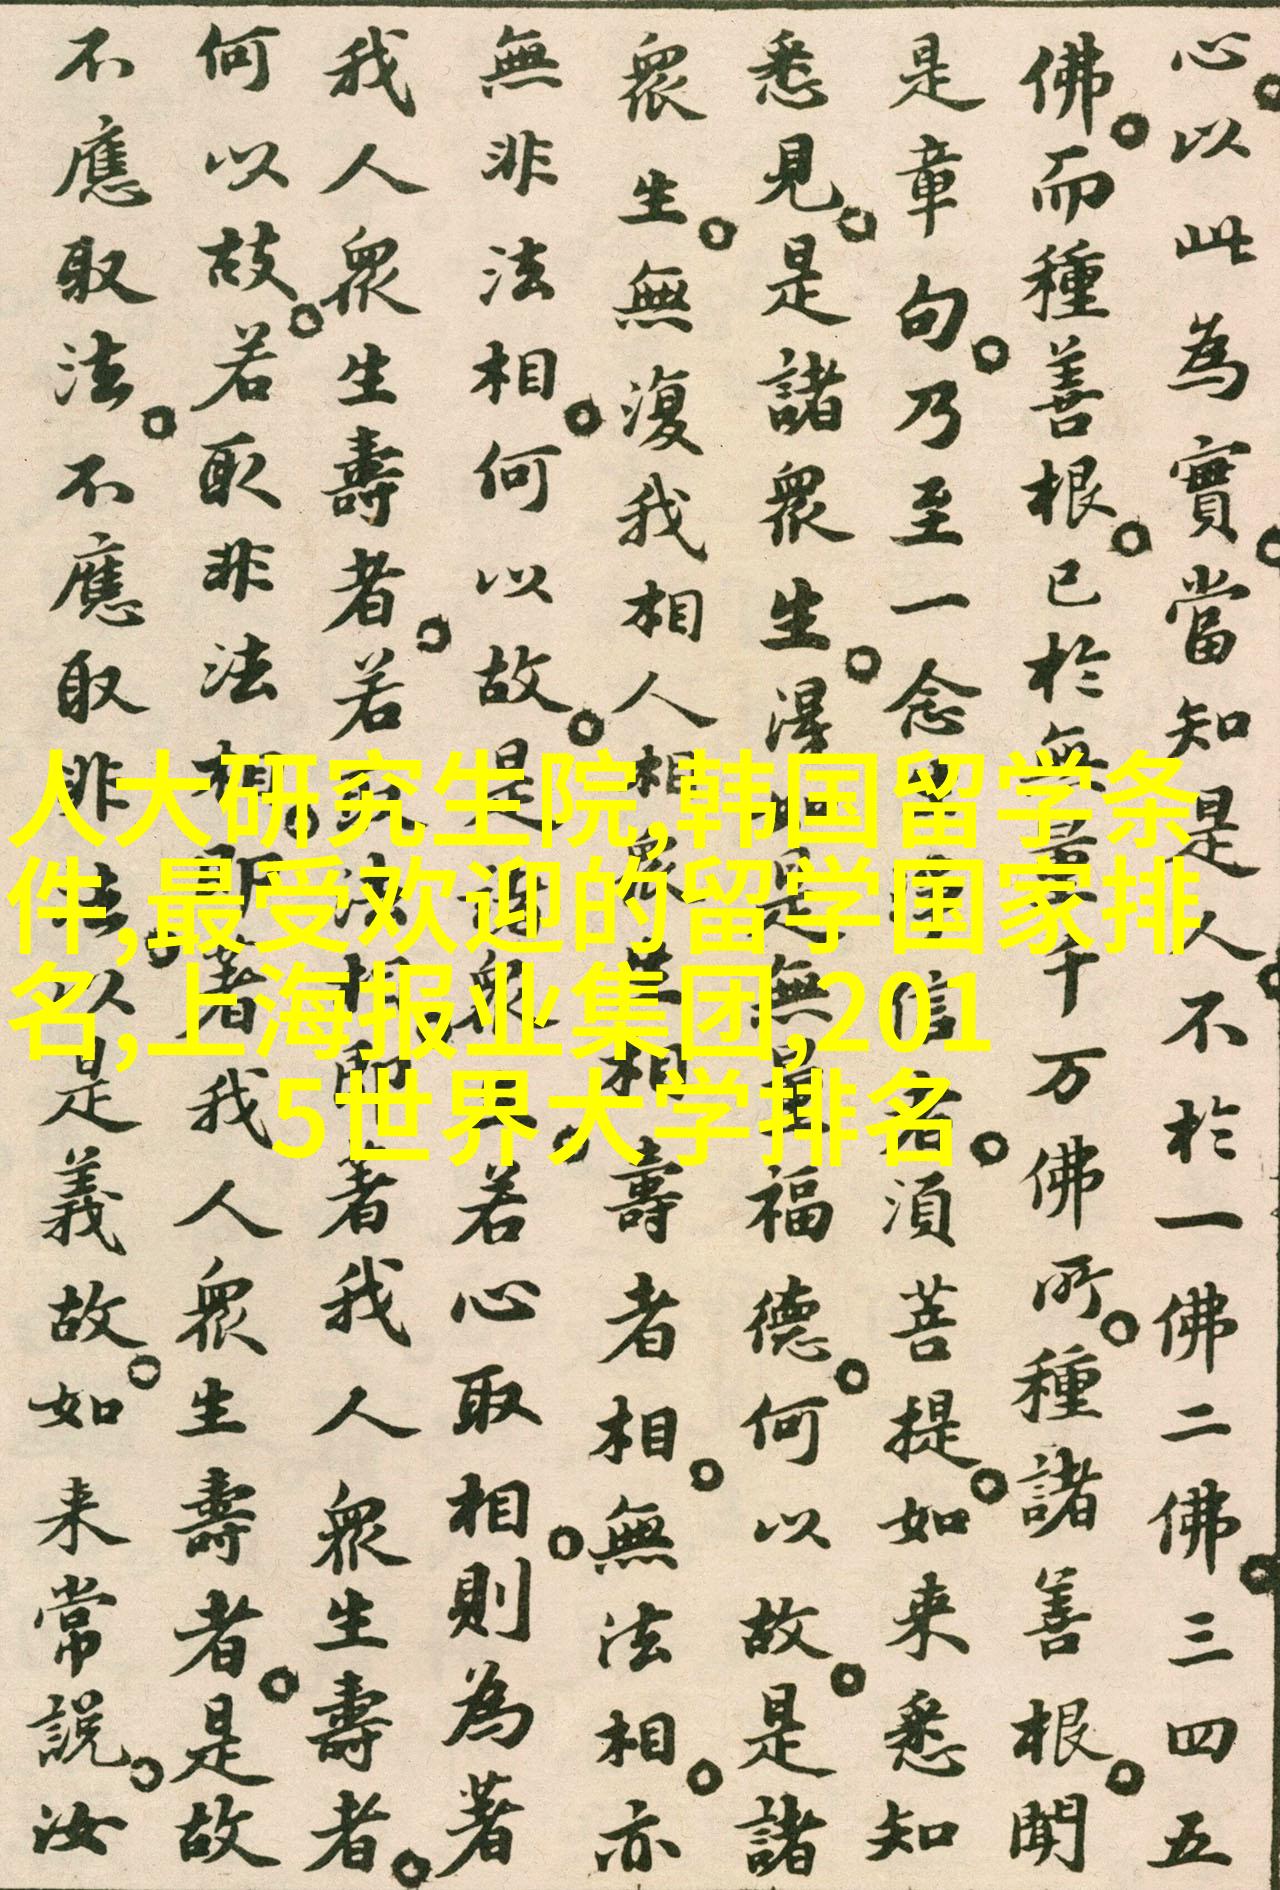 心。以此為實。當知是人。不於一佛二佛。三四五
佛。而種善根。已於無量千万佛所。種諸善根。聞
是章句。乃至一念生淨信者。須菩提。如来悉知
悉見。是諸眾生。淂如是無量福德。何以故。是諸
眾生。無復我相人相眾生相壽者相。無法相。亦
無非法相。何以故。是諸眾生。若心取相。則為著
我人眾生壽者。若取法相即著我人眾生壽者。
何以故。若取非法相。即著我人眾生壽者。是故
不應取法。不應取非法。以是義故。如来常說。汝
人大研究生院,韩国留学条
件,最受欢迎的留学国家排
名,上海报业集团,201
5世界大学排名